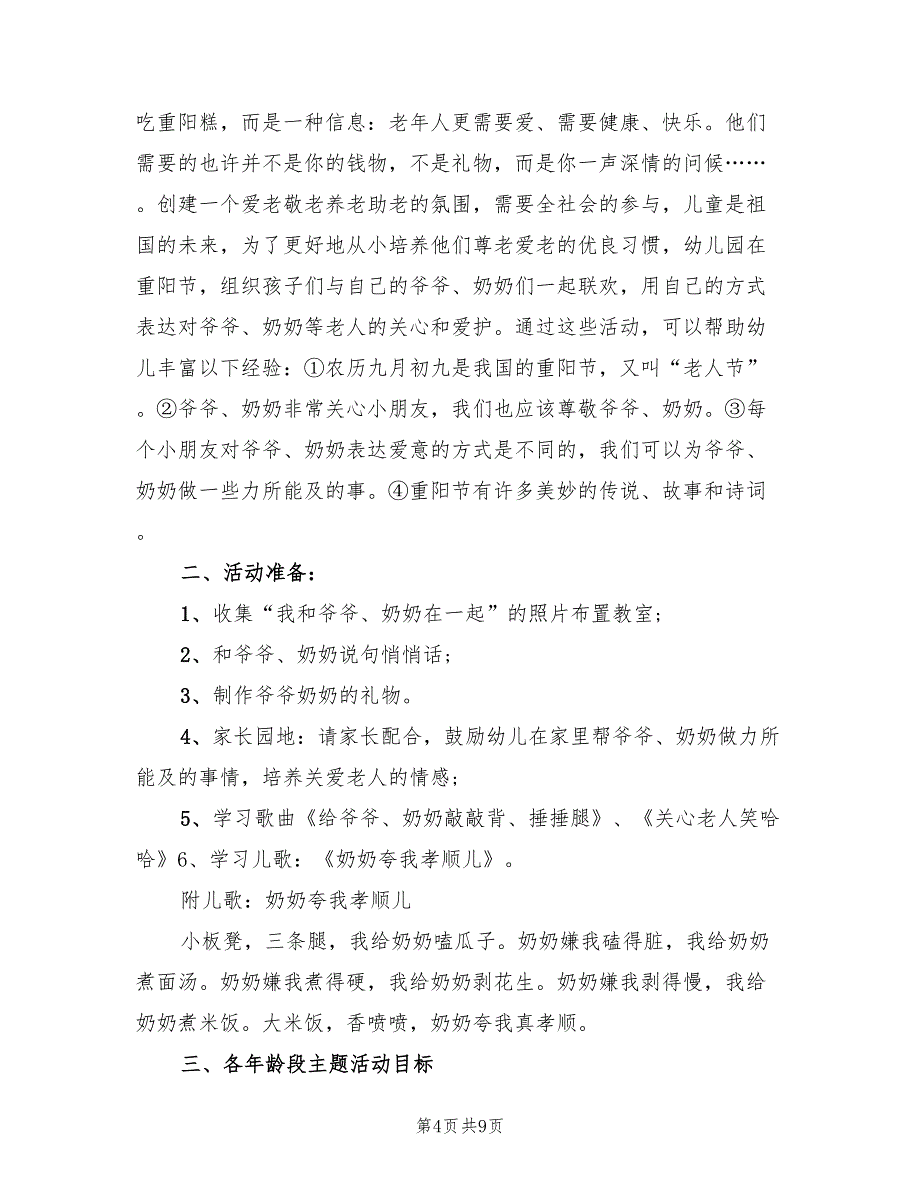 吃重阳糕，而是一种信息：老年人更需要爱、需要健康、快乐。他们
需要的也许并不是你的钱物，不是礼物，而是你一声深情的问候……
。创建一个爱老敬老养老助老的氛围，需要全社会的参与，儿童是祖
国的未来，为了更好地从小培养他们尊老爱老的优良习惯，幼儿园在
重阳节，组织孩子们与自己的爷爷、奶奶们一起联欢，用自己的方式
表达对爷爷、奶奶等老人的关心和爱护。通过这些活动，可以帮助幼
儿丰富以下经验：①农历九月初九是我国的重阳节，又叫“老人节”
。②爷爷、奶奶非常关心小朋友，我们也应该尊敬爷爷、奶奶。③每
个小朋友对爷爷、奶奶表达爱意的方式是不同的，我们可以为爷爷、
奶奶做一些力所能及的事。④重阳节有许多美妙的传说、故事和诗词
。
二、活动准备：
1、收集“我和爷爷、奶奶在一起”的照片布置教室;
2、和爷爷、奶奶说句悄悄话;
3、制作爷爷奶奶的礼物。
4、家长园地：请家长配合，鼓励幼儿在家里帮爷爷、奶奶做力所
能及的事情，培养关爱老人的情感;
5、学习歌曲《给爷爷、奶奶敲敲背、捶捶腿》、《关心老人笑哈
哈》6、学习儿歌：《奶奶夸我孝顺儿》。
附儿歌：奶奶夸我孝顺儿
小板凳，三条腿，我给奶奶嗑瓜子。奶奶嫌我磕得脏，我给奶奶
煮面汤。奶奶嫌我煮得硬，我给奶奶剥花生。奶奶嫌我剥得慢，我给
奶奶煮米饭。大米饭，香喷喷，奶奶夸我真孝顺。
三、各年龄段主题活动目标
第4页共9页